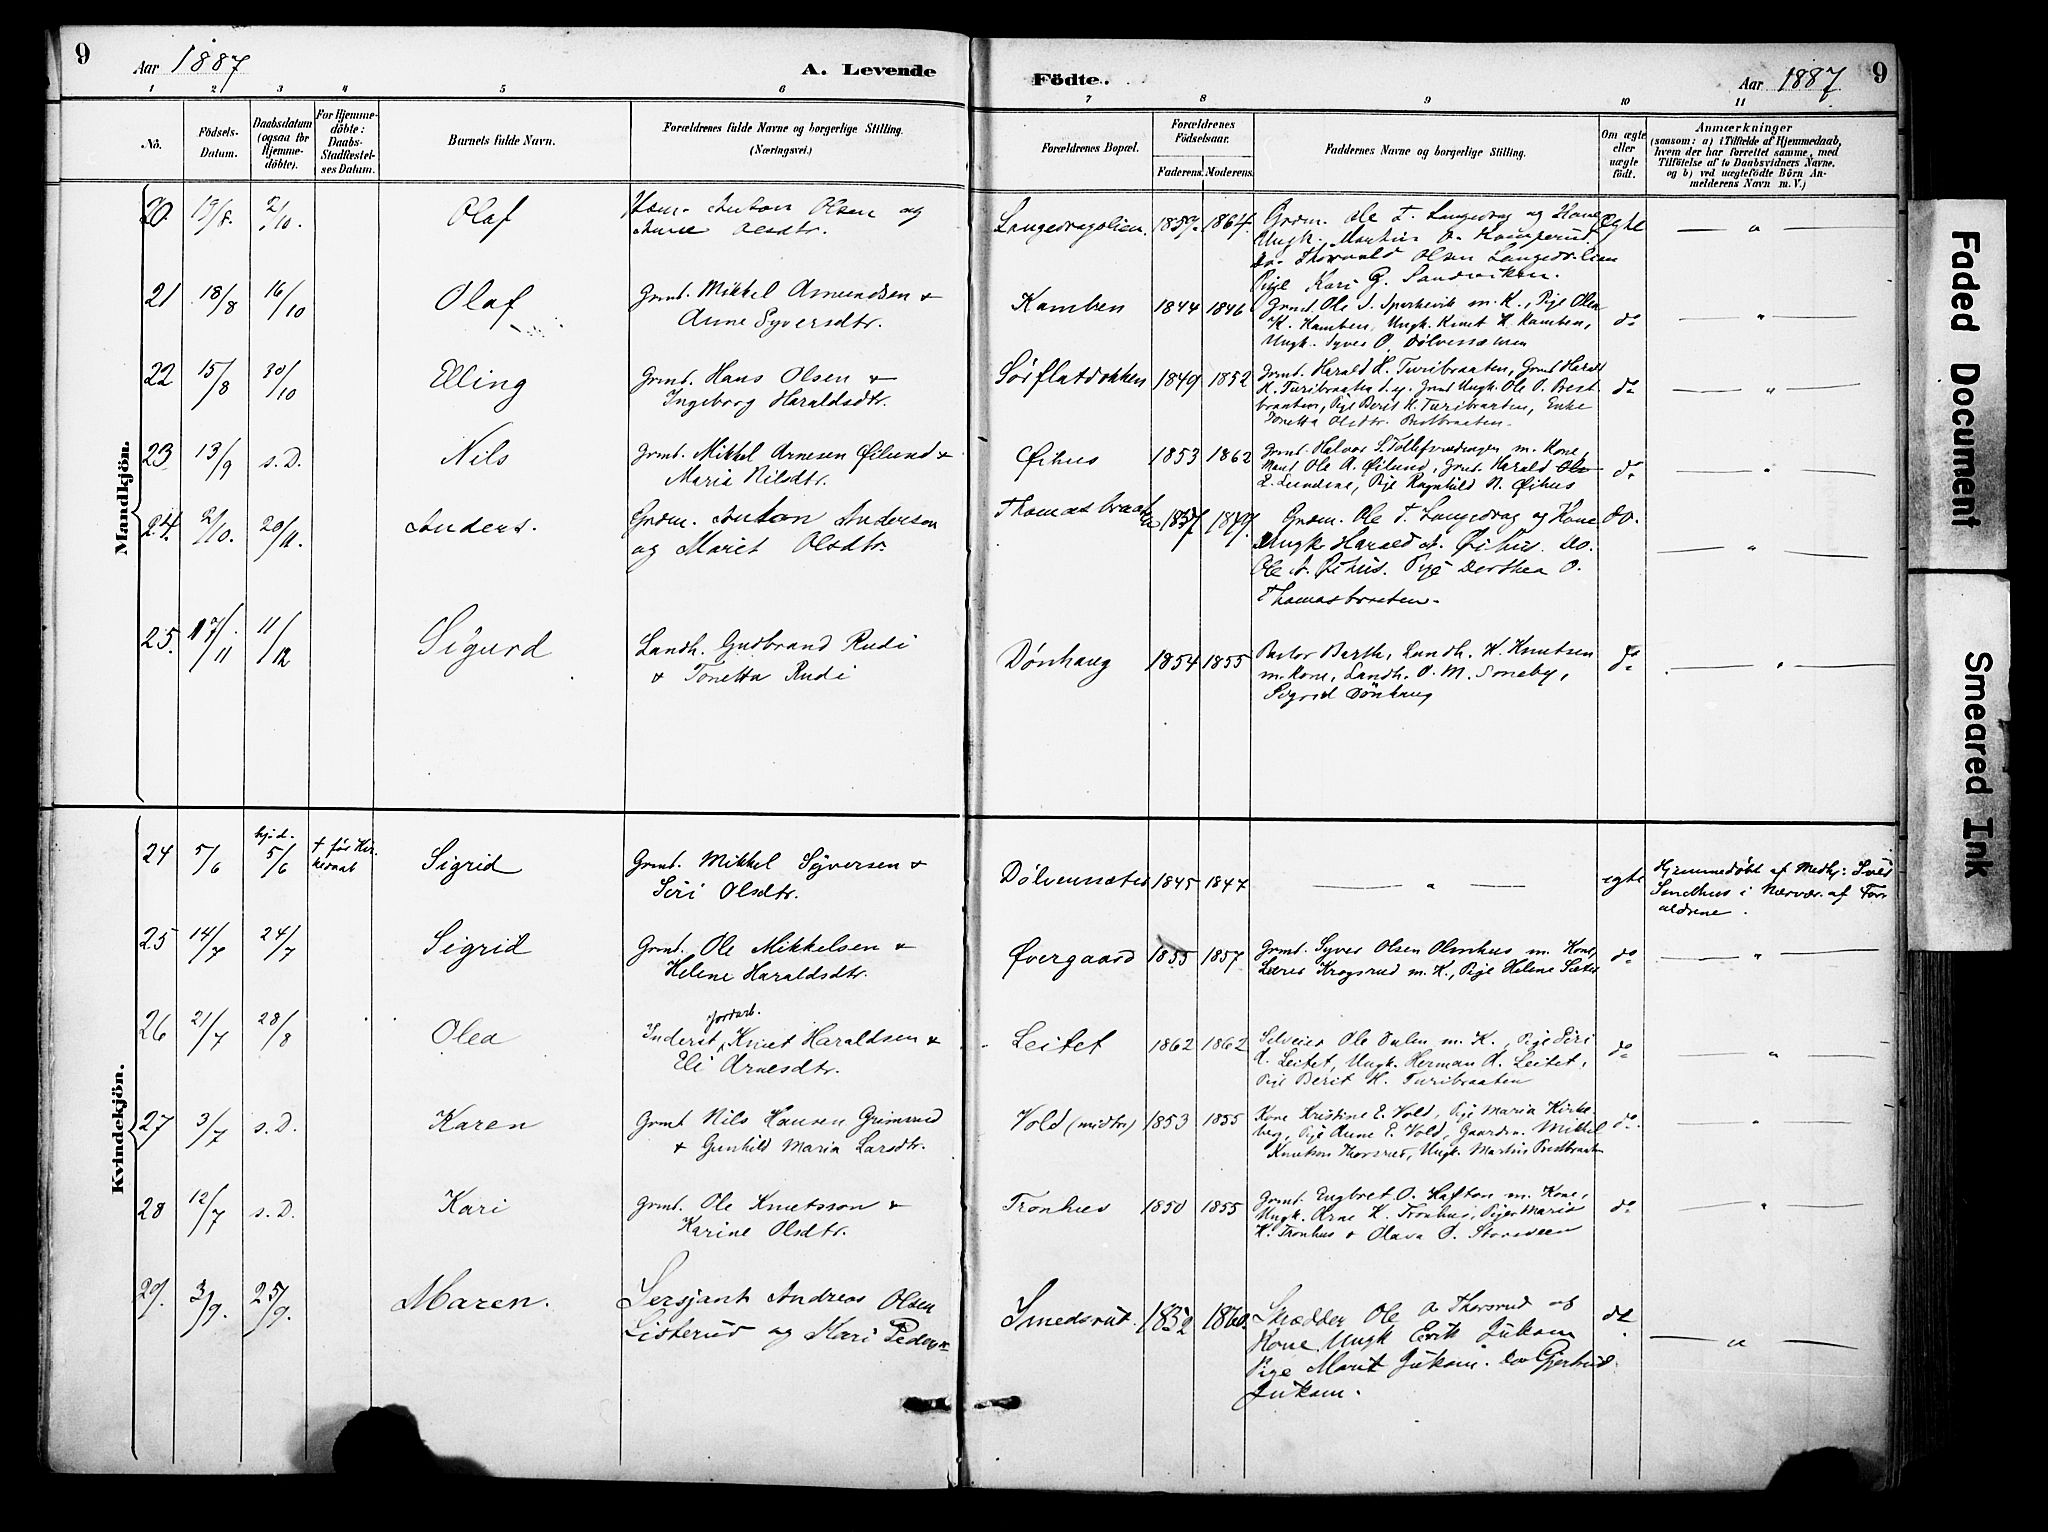 9
Aar 1887
A. Levende
Födte.
Aar 1887
9
1 2 3 4 5 6 7 8 9 10 11
No.
Födsels-
Datum.
Daabsdatum
(ogsaa for
Hjemme-
döbte).
For Hjemme-
döbte:
Daabs-
Stadfæstel-
ses Datum.
Barnets fulde Navn.
Forældrenes fulde Navne og borgerlige Stilling.
(Næringsvei.)
Forældrenes Bopæl.
Forældrenes
Födselsaar.
Faderens. Moderens.
Faddernes Navne og borgerlige Stilling.
Om ægte
eller
uægte
födt.
Anmærkninger
(saasom: a) i Tilfælde af Hjemmedaab,
hvem der har forrettet samme, med
Tilföielse af to Daabsvidners Navne,
og b) ved uægtefödte Börn An-
melderens Navn m. V.)
Mandkjön.
20. 19/8. 2/10. Olaf
Anton Olsen og
Anne Olsdtr.
Langedragslien. 1859. 1864.
Grdm. Ole T. Langedrag og Kone
Ungk. Martin O. Kamperud.
Do. Thorvald Olsen Langedr.lien
Pige Kari G. Sandviken.
Ægte — " —
21 18/8 16/10 Olaf
Grmd. Mikkel Amundsen &
Anne Syversdtr.
Kamben 1844 1846
Grmd. Ole S. Sparkevik m. K., Pige Olea
K. Kamben, Ungk. Knut K. Kamben,
Ungk. Syver O. Dölvesæteren
do — " —
22 15/8 30/10 Elling
Grmd. Hans Olsen &
Ingeborg Haraldsdtr.
Sörflatdokken 1849 1852
Grmd. Harald H. Turibraaten, Grmd Harald
H. Turibraaten d. y. Ungk. Ole O. Prest-
braaten, Pige Berit H. Turibraaten, Enke
Tonetta Olsdtr. Prestbraaten.
do — " —
23 13/9 s. D. Nils
Grmd. Mikkel Arnesen Øilund &
Maria Nilsdtr.
Øihus 1853 1862
Grmd. Halvor S. Tollefsrudengen m. Kone,
Ole A. Øilund, Grmd. Harald
L. Lundene, Pige Ragnhild N. Øihus
do — " —
24. 2/10. 20/11. Anders.
Grdm. Anton Anderson
og Marit Olsdtr.
Thomasbraaten 1857 1849.
Grdm. Ole T. Langedrag og Kone
Ungk Harald A. Øihus. Do.
Ole A. Øihus. Pige Dorthea O.
Thomasbraaten.
do. — " —
25. 17/11 11/12 Sigurd
Landh. Gudbrand Rudi
& Tonetta Rudi
Dönhaug 1854 1855
Pastor Barth, Landh. H. Knutsen
m. Kone, Landh. O. M. Smeby,
Sigrid Dönhaug
do — " —
Kvindekjön.
24 5/6 hjd. 5/6 † før Kir-
Sigrid
Grmd. Mikkel Syversen &
Siri Olsdtr.
Dölvensæter 1845 1847
— " —
egte
Hjemmedöbt af Medhj:
Smedhus i Nærvær. af For-
ældrene.
25 14/7 24/7 Sigrid
Grmd. Ole Mikkelsen &
Helene Haraldsdtr.
Øvergaard 1855 1857
Grmd. Syver Olsen Olmhus m. Kone,
Lærer Krogsrud m. K., Pige Helene Sæter
do — " —
26 21/7 28/8 Olea
Jordarb.
Inderst, Knut Haraldsen &
Eli Arnesdtr.
Leitet 1862 1862
Selveier Ole Dalen m. K., Pige Siri
A. Leitet, Ungk. Herman A. Leitet,
Pige Berit H. Turibraaten
do — " —
27 3/7 s. D. Karen
Grmd Nils Hansen Grimsrud
& Gunhild Maria Larsdtr.
Vold (midtr) 1853 1855
Kone Kristine E. Vold, Pige Maria Kirke-
berg, Pige Anne E. Vold, Gaardm. Mikkel
Knutson Thorsrud, Ungk. Martin Prestbraaten
do — " —
28 12/7 s. D. Kari
Grmd. Ole Knutsson &
Karine Olsdtr.
Tronhus 1850 1855
Grmd. Engbret O. Hafton m. Kone,
Ungk. Arne K. Tronhus, Piger Maria
K. Tronhus & Olava O. Storsveen
do — " —
29. 3/9. 25/9. Maren.
Sersjant Andreas Olsen
Listerud og Kari Pedersdtr
Smedsrud. 1852 1860.
Skrædder Ole A. Thorsrud og
Kone, Ungk Erik Jukam
Pige Marit Jukam. Do Gjertrud
Jukam.
do. — " —
Faded Document
Smeared Ink